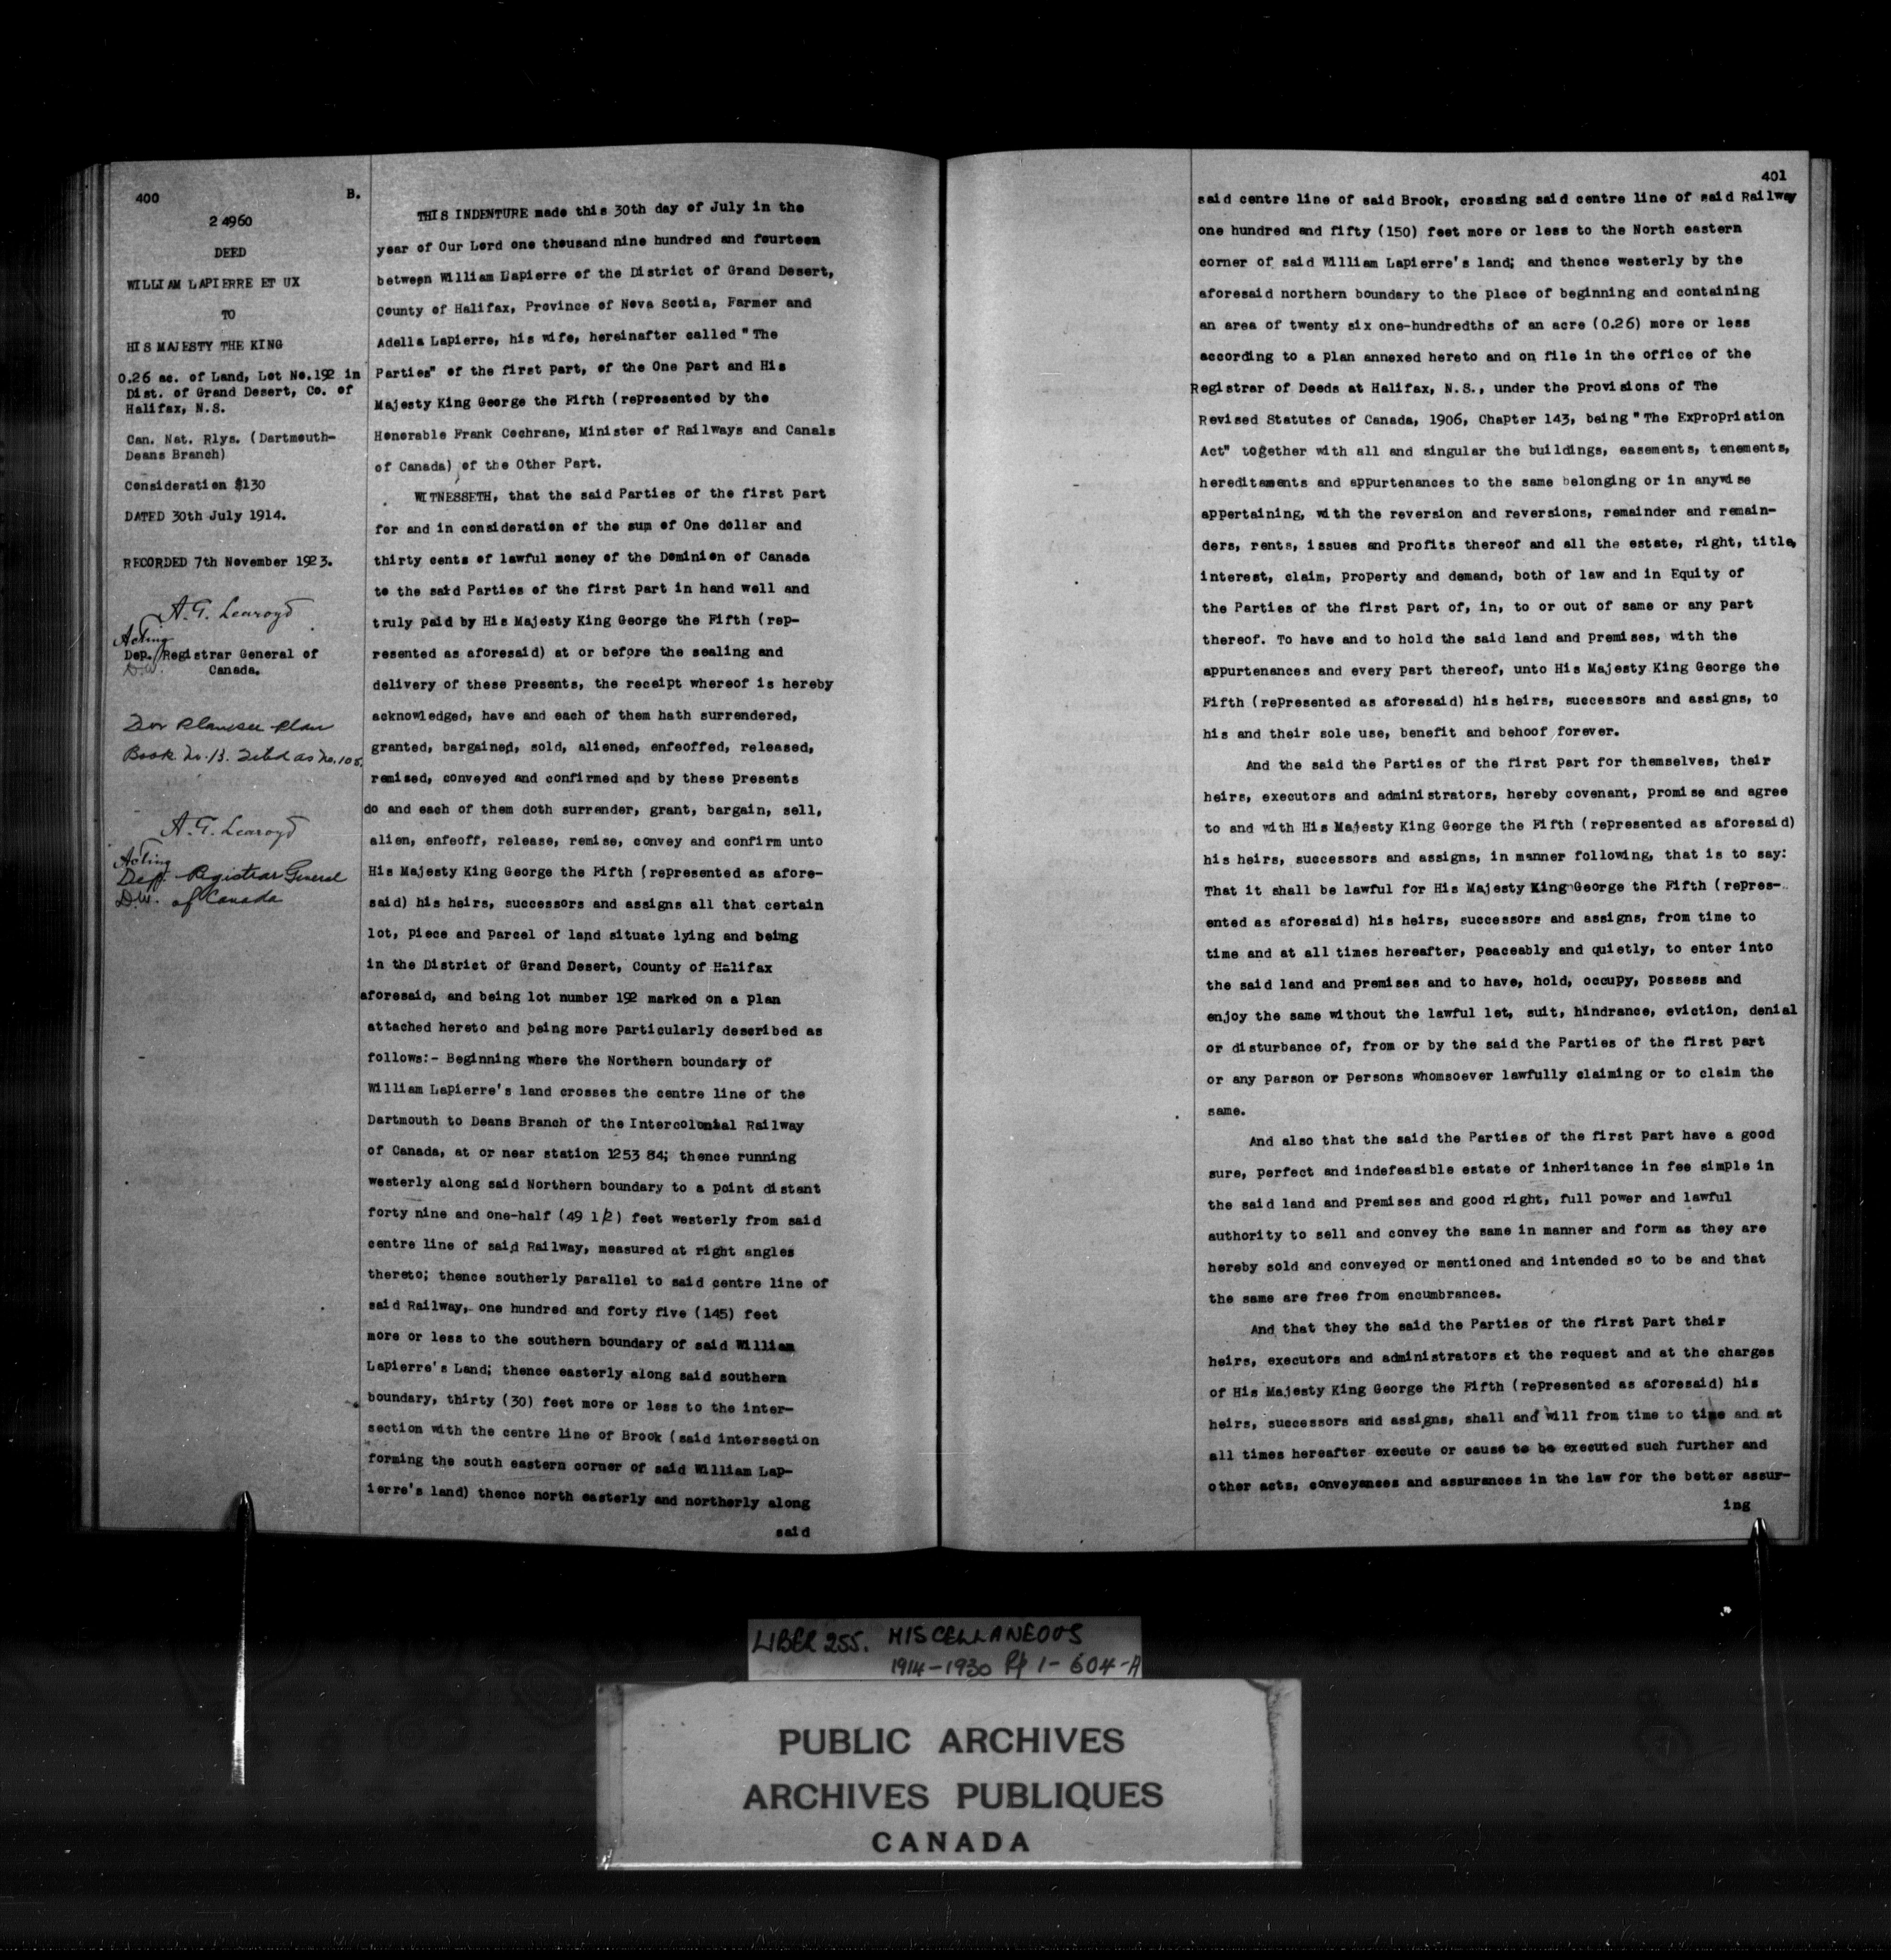 400
B.
24960
DEED
WILLIAM LAPIERRE ET UX
TO
HIS MAJESTY THE KING
0.26 ac. of Land, Lot No.192 in
Dist. of Grand Desert, Co. of
Halifax, N.S.
Can. Nat. Rlys. (Dartmouth-
Deans Branch)
Consideration $130
DATED 30th July 1914.
RECORDED 7th November 1923.
A. G. Learoyd
Acting
Dep. Registrar General of
D.W. Canada.
For Plan see Plan
Book No. 13. Filed as No. 108.
A. G. Learoyd
Acting
Dep. Registrar General
D.W. of Canada
THIS INDENTURE made this 30th day of July in the
year of Our Lord one thousand nine hundred and fourteen
between William Lapierre of the District of Grand Desert,
County of Halifax, Province of Nova Scotia, Farmer and
Adella Lapierre, his wife, hereinafter called "The
Parties" of the first part, of the One part and His
Majesty King George the Fifth (represented by the
Honorable Frank Cochrane, Minister of Railways and Canals
of Canada) of the Other Part.
WITNESSETH, that the said Parties of the first part
for and in consideration of the sum of One dollar and
thirty cents of lawful money of the Dominion of Canada
to the said Parties of the first part in hand well and
truly paid by His Majesty King George the Fifth (rep-
resented as aforesaid) at or before the sealing and
delivery of these presents, the receipt whereof is hereby
acknowledged, have and each of them hath surrendered,
granted, bargained, sold, aliened, enfeoffed, released,
remised, conveyed and confirmed and by these presents
do and each of them doth surrender, grant, bargain, sell,
alien, enfeoff, release, remise, convey and confirm unto
His Majesty King George the Fifth (represented as afore-
said) his heirs, successors and assigns all that certain
lot, piece and parcel of land situate lying and being
in the District of Grand Desert, County of Halifax
aforesaid, and being lot number 192 marked on a plan
attached hereto and being more particularly described as
follows:- Beginning where the Northern boundary of
William Lapierre's land crosses the centre line of the
Dartmouth to Deans Branch of the Intercolonial Railway
of Canada, at or near station 1253 84; thence running
westerly along said Northern boundary to a point distant
forty nine and one-half (49 1/2) feet westerly from said
centre line of said Railway, measured at right angles
thereto; thence southerly parallel to said centre line of
said Railway, one hundred and forty five (145) feet
more or less to the southern boundary of said William
Lapierre's Land; thence easterly along said southern
boundary, thirty (30) feet more or less to the inter-
section with the centre line of Brook (said intersection
forming the south eastern corner of said William Lap-
ierre's land) thence north easterly and northerly along
said
401
said centre line of said Brook, crossing said centre line of said Railway
one hundred and fifty (150) feet more or less to the North eastern
corner of said William Lapierre's land; and thence westerly by the
aforesaid northern boundary to the place of beginning and containing
an area of twenty six one-hundredths of an acre (0.26) more or less
according to a plan annexed hereto and on file in the office of the
Registrar of Deeds at Halifax, N.S., under the provisions of The
Revised Statutes of Canada, 1906, Chapter 143, being "The Expropriation
Act" together with all and singular the buildings, easements, tenements,
hereditaments and appurtenances to the same belonging or in anywise
appertaining, with the reversion and reversions, remainder and remain-
ders, rents, issues and profits thereof and all the estate, right, title,
interest, claim, property and demand, both of law and in Equity of
the Parties of the first part of, in, to or out of same or any part
thereof. To have and to hold the said land and premises, with the
appurtenances and every part thereof, unto His Majesty King George the
Fifth (represented as aforesaid) his heirs, successors and assigns, to
his and their sole use, benefit and behoof forever.
And the said the Parties of the first part for themselves, their
heirs, executors and administrators, hereby covenant, promise and agree
to and with His Majesty King George the Fifth (represented as aforesaid)
his heirs, successors and assigns, in manner following, that is to say:
That it shall be lawful for His Majesty King George the Fifth (repres-
ented as aforesaid) his heirs, successors and assigns, from time to
time and at all times hereafter, peaceably and quietly, to enter into
the said land and premises and to have, hold, occupy, possess and
enjoy the same without the lawful let, suit, hindrance, eviction, denial
or disturbance of, from or by the said the Parties of the first part
or any parson or persons whomsoever lawfully claiming or to claim the
same.
And also that the said the Parties of the first part have a good
sure, perfect and indefeasible estate of inheritance in fee simple in
the said land and premises and good right, full power and lawful
authority to sell and convey the same in manner and form as they are
hereby sold and conveyed or mentioned and intended so to be and that
the same are free from encumbrances.
And that they the said the Parties of the first part their
heirs, executors and administrators at the request and at the charges
of His Majesty King George the Fifth (represented as aforesaid) his
heirs, successors and assigns, shall and will from time to time and at
all times hereafter execute or cause to be executed such further and
other acts, conveyances and assurances in the law for the better assur-
ing
LIBER 255. MISCELLANEOUS
1914-1930 Pp 1-604-A
PUBLIC ARCHIVES
ARCHIVES PUBLIQUES
CANADA